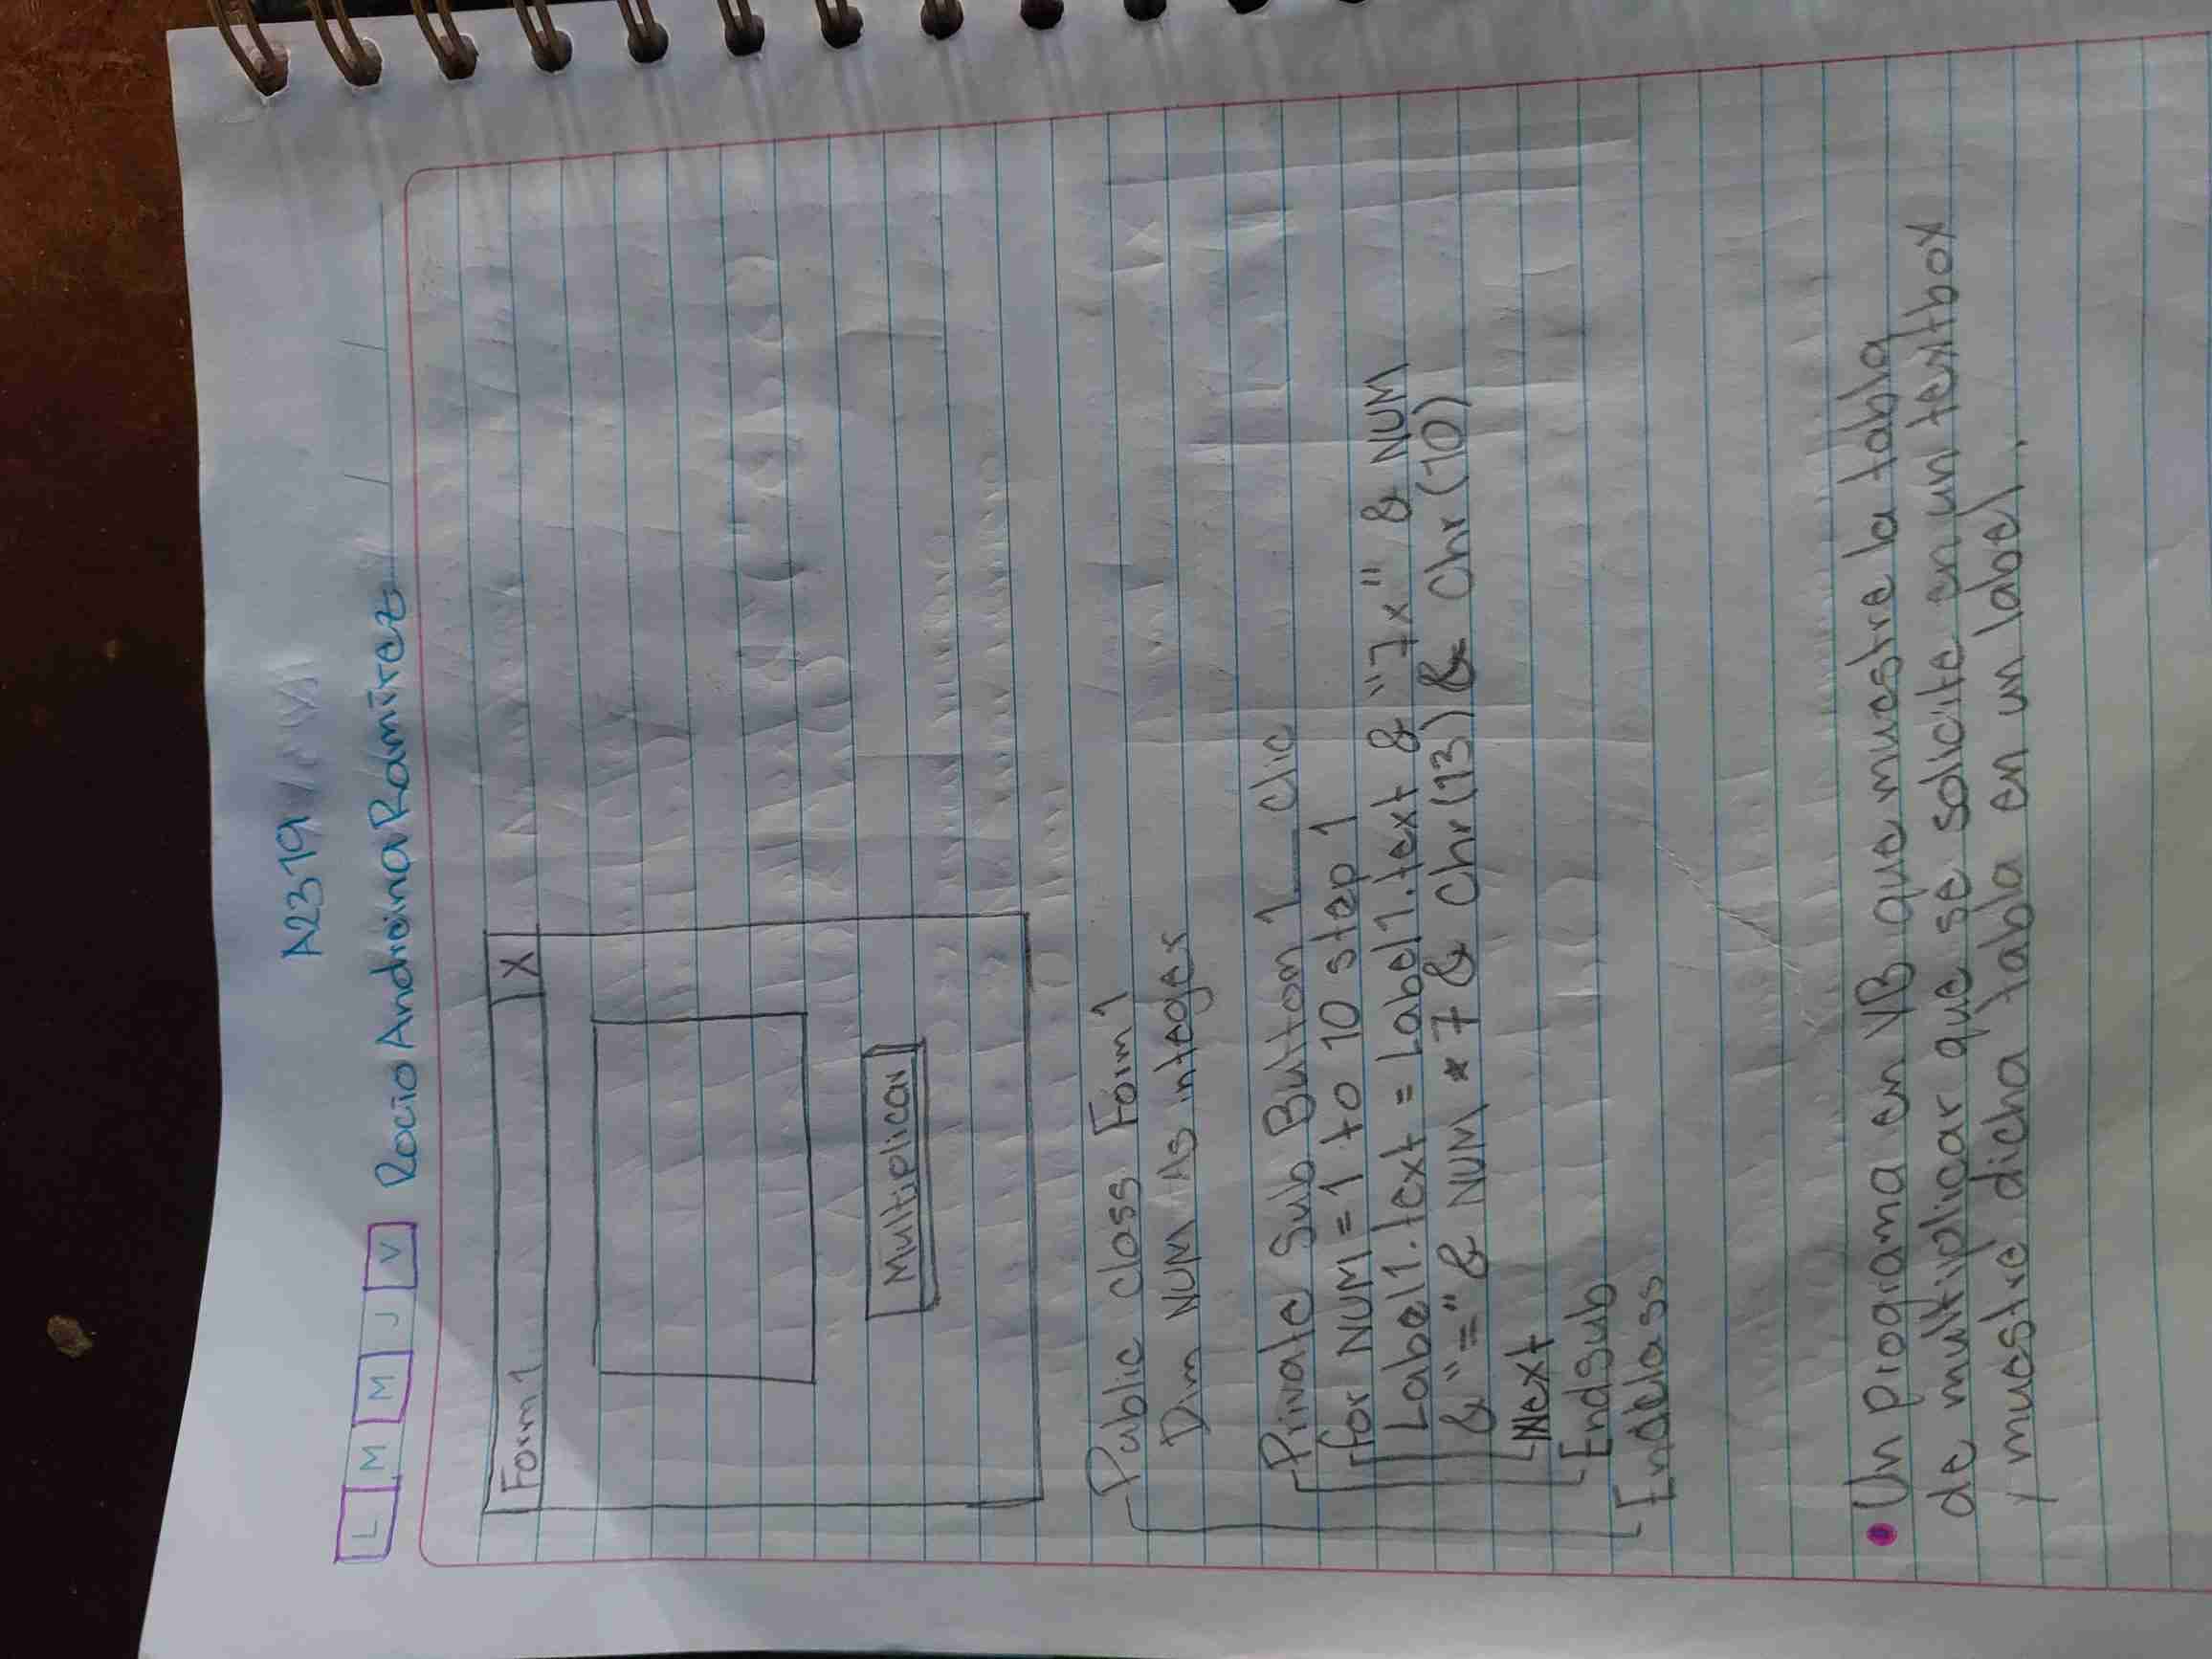 A2319
L M M J V Rocío Andreina Ramírez
Form1 X
Multiplicar
Public class Form1
Dim NUM As integer
Private Sub Button1_clic
for NUM=1 to 10 step 1
Label1.text = Label1.text & "7x" & NUM
& "=" & NUM * 7 & chr(13) & chr(10)
Next
Endsub
Endclass
• Un programa en VB que muestre la tabla
de multiplicar que se solicite en un textbox
y muestre dicha tabla en un label.